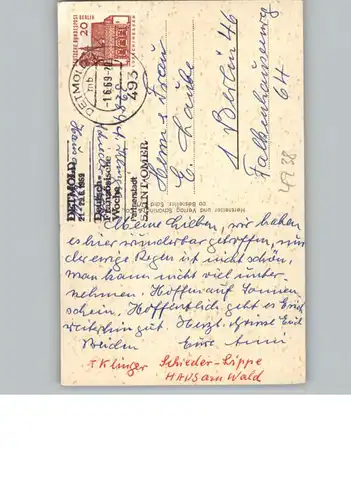 DEUTSCHE BUNDESPOST BERLIN
20
DETMOLD
-1.6.69-20
493
DETMOLD
1969
Deutsch-
Französische
Woche
Patenstadt
SAINT-OMER
Herrn u. Frau
E. Laube
1 Berlin 46
Falkenhausenweg
64
Hersteller und Verlag Schöning
4938
Meine Lieben, wir haben
es hier wunderbar getroffen, nur
der ewige Regen ist nicht schön,
man kann nicht viel unter-
nehmen. Hoffen auf Sonnen
schein. Hoffentlich geht es Euch
weiterhin gut. Herzl. Grüsse Euch
Beiden Eure Anni
Klinger Schieder-Lippe
HAUS am Wald